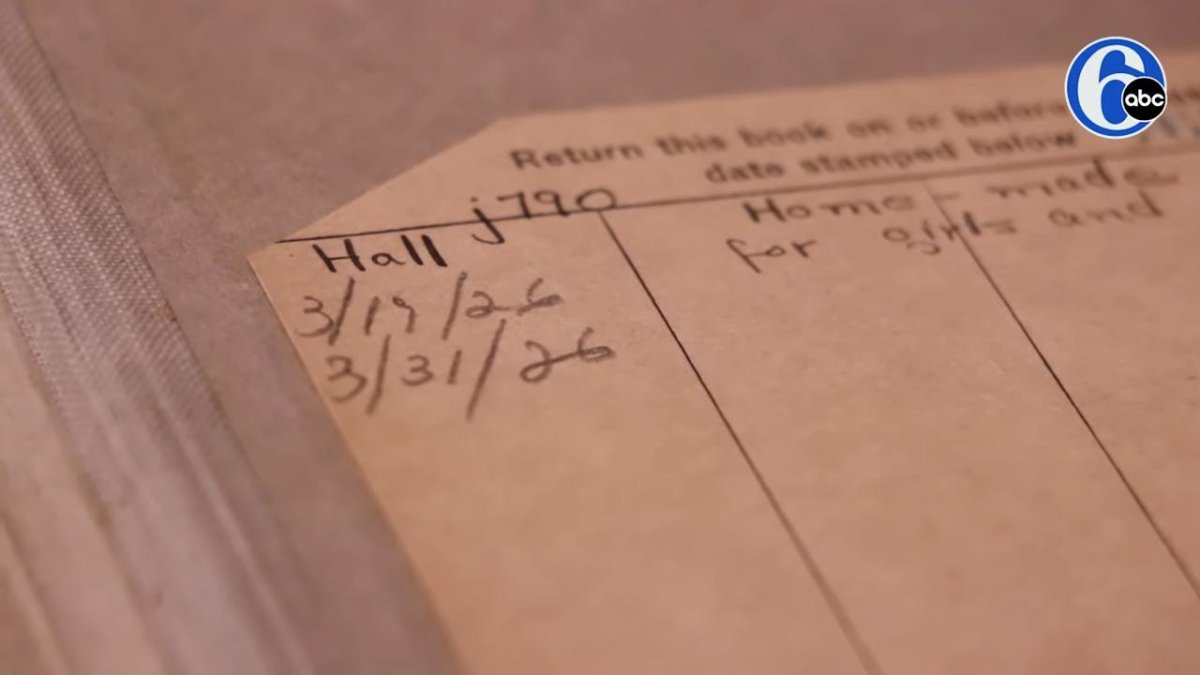 6 abc
Return this book on or before
date stamped below
j790
Hall
Home-made
for girls and
3/19/26
3/31/26